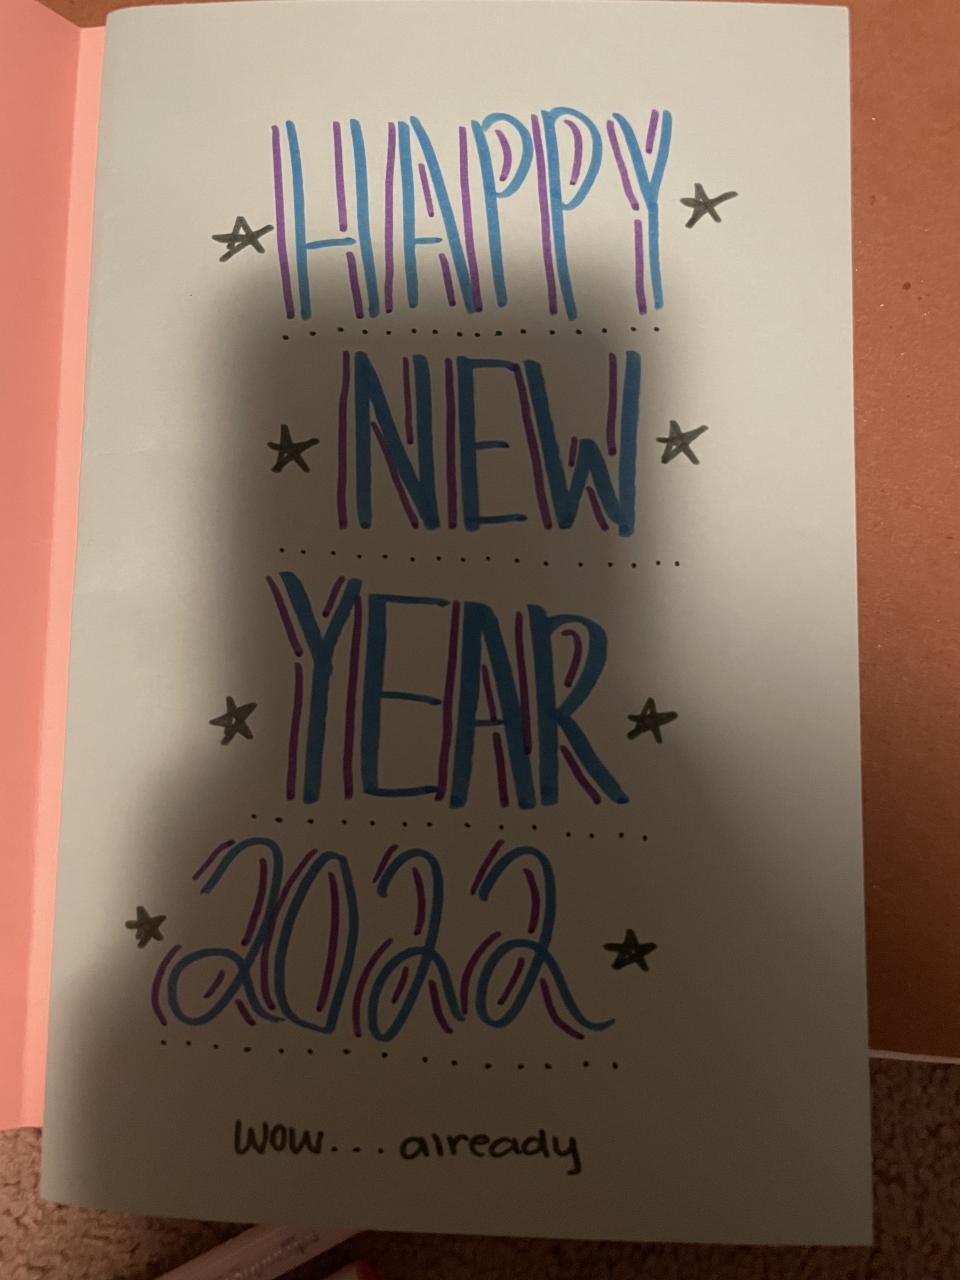 HAPPY
NEW
YEAR
2022
wow... already